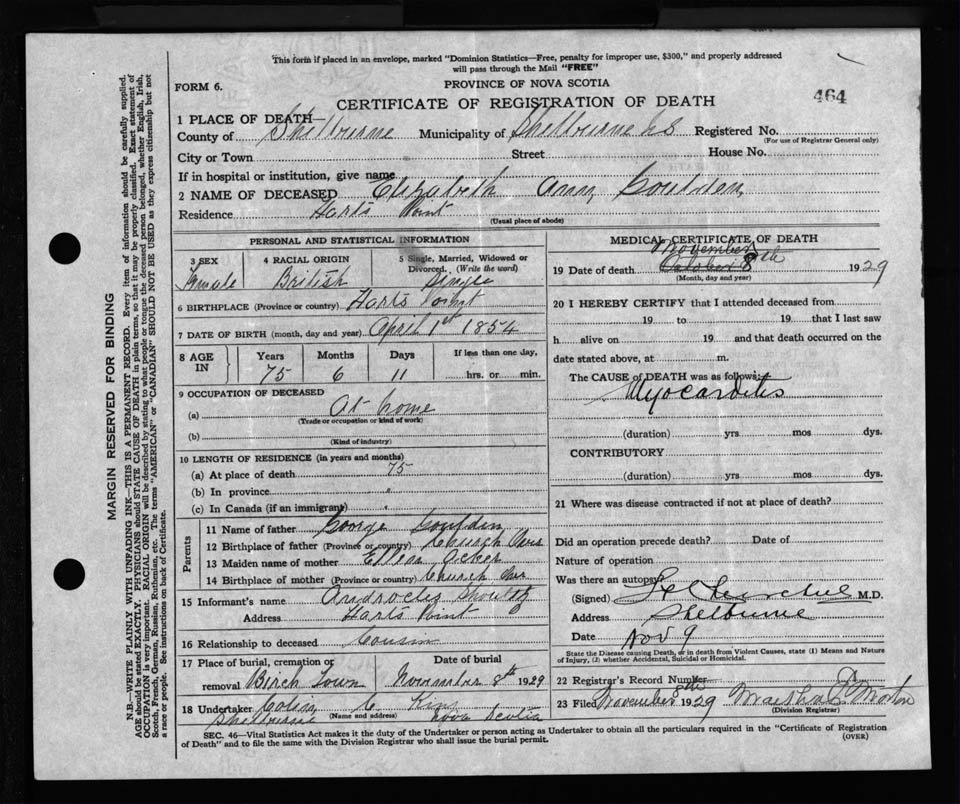 This form if placed in an envelope, marked "Dominion Statistics—Free, penalty for improper use, $300," and properly addressed
will pass through the Mail "FREE"
FORM 6.
PROVINCE OF NOVA SCOTIA
CERTIFICATE OF REGISTRATION OF DEATH
464
1 PLACE OF DEATH—
County of Shelburne Municipality of Shelburne Registered No.
(For use of Registrar General only)
City or Town Street House No.
If in hospital or institution, give name
2 NAME OF DECEASED Elizabeth Ann Goulden
Residence Harts Point
(Usual place of abode)
PERSONAL AND STATISTICAL INFORMATION
3 SEX 4 RACIAL ORIGIN 5 Single, Married, Widowed or
Divorced. (Write the word)
Female British Single
6 BIRTHPLACE (Province or country) Harts Point
7 DATE OF BIRTH (month, day and year) April 1st 1854
8 AGE IN Years Months Days If less than one day,
75 6 11 hrs. or min.
9 OCCUPATION OF DECEASED
(a) At home
(Trade or occupation or kind of work)
(b)
(Kind of industry)
10 LENGTH OF RESIDENCE (in years and months)
(a) At place of death 75
(b) In province "
(c) In Canada (if an immigrant) "
Parents
11 Name of father George Goulden
12 Birthplace of father (Province or country) Church Over
13 Maiden name of mother Ellen Acker
14 Birthplace of mother (Province or country) Church Over
15 Informant's name
Address Harts Point
16 Relationship to deceased Cousin
17 Place of burial, cremation or Date of burial
removal Birch Town November 8th 1929
18 Undertaker Colin C. King
(Name and address)
Shelburne Nova Scotia
MEDICAL CERTIFICATE OF DEATH
November
19 Date of death October 8th 1929
(Month, day and year)
20 I HEREBY CERTIFY that I attended deceased from
19 to 19 that I last saw
h alive on 19 and that death occurred on the
date stated above, at m.
The CAUSE of DEATH was as follows:
Myocarditis
(duration) yrs mos dys.
CONTRIBUTORY
(duration) yrs mos dys.
21 Where was disease contracted if not at place of death?
Did an operation precede death? Date of
Nature of operation
Was there an autopsy
(Signed) M.D.
Address Shelburne
Date Nov 9
State the Disease causing Death, or in death from Violent Causes, state (1) Means and Nature
of Injury, (2) whether Accidental, Suicidal or Homicidal.
22 Registrar's Record Number
23 Filed November 8th 1929 Martha Morton
(Division Registrar)
SEC. 46—Vital Statistics Act makes it the duty of the Undertaker or person acting as Undertaker to obtain all the particulars required in the "Certificate of Registration
of Death" and to file the same with the Division Registrar who shall issue the burial permit.
(OVER)
MARGIN RESERVED FOR BINDING
N.B.—WRITE PLAINLY WITH UNFADING INK—THIS IS A PERMANENT RECORD. Every item of information should be carefully supplied.
AGE should be stated EXACTLY. PHYSICIANS should STATE CAUSE OF DEATH in plain terms, so that it may be properly classified. Exact statement of
OCCUPATION is very important. RACIAL ORIGIN will be described by stating to what people or tongue the deceased person belonged, whether English, Irish,
Scotch, French, German, Russian, Ruthenian, etc. The terms "AMERICAN" or "CANADIAN" SHOULD NOT BE USED as they express citizenship but not
a race or people. See instructions on back of Certificate.